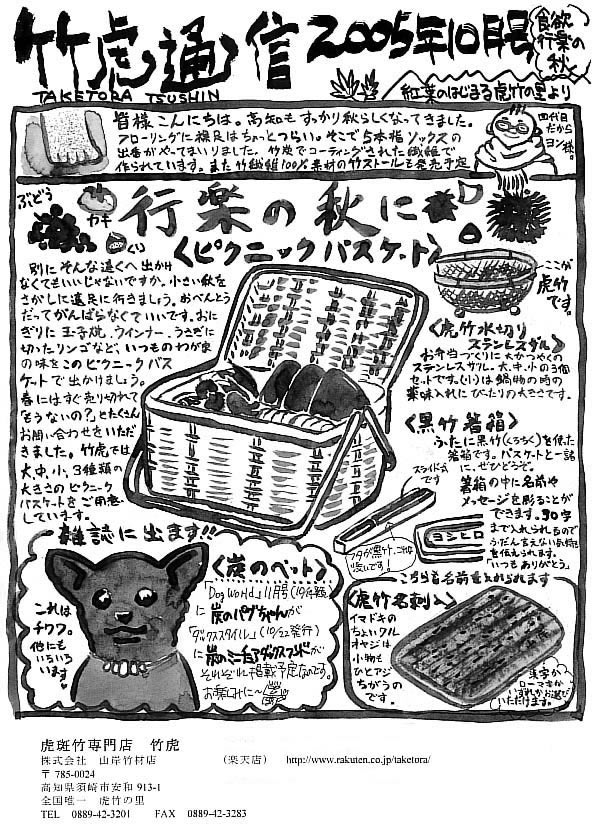 竹虎通信 2005年10月号
食欲
行楽の
秋
TAKETORA TSUSHIN
紅葉のはじまる虎竹の里より
皆様こんにちは。高知もすっかり秋らしくなってきました。
フローリングに裸足はちょっとつらい。そこで5本指ソックスの
出番がやってまいりました。竹炭でコーティングされた繊維で
作られています。また竹繊維100%素材の竹ストールも発売予定
四代目
だから
ヨン様。
ぶどう
カキ
くり
行楽の秋に
<ピクニックバスケット>
別にそんな遠くへ出かけ
なくてもいいじゃないですか。小さい秋を
さがしに遠足に行きましょう。おべんとう
だってがんばらなくていいです。おに
ぎりに玉子焼、ウインナー、うさぎに
切ったリンゴなど、いつものわが家
の味をこのピクニックバス
ケットで出かけましょう。
春にはすぐ売り切れて
「もうないの?」とたくさん
お問い合わせをいただ
きました。竹虎では
大、中、小、3種類の
大きさのピクニック
バスケットをご用意
しています。
ここが
虎竹
です。
<虎竹水切り
ステンレスザル>
お弁当づくりに大かつやくの
ステンレスザル。大、中、小の3個
セットです。(小)は鍋物の時の
薬味入れにぴったりの大きさです。
<黒竹箸箱>
ふたに黒竹(くろちく)を使った
箸箱です。バスケットと一緒
に、ぜひどうぞ。
スライド式
です
箸箱の中に名前や
メッセージを彫ることが
できます。30字
まで入れられるので
ふだん言えない気持
を伝えられます。
「いつもありがとう。」
ヨシヒロ
フタが黒竹、これは
渋いです!
こちらも名前を入れられます
雑誌に出ます!!
これは
チワワ。
他にも
いろいろ
います
<炭のペット>
「Dog World」11月号
に炭のパグちゃんが
「ダックススタイル」
に炭のミニチュアダックスフンドが
それぞれ掲載予定なのです。
お楽しみに〜
<虎竹名刺入>
イマドキの
ちょいワル
オヤジは
小物も
ひとアジ
ちがうの
です。
漢字か
ローマ字か
いずれかお選び
いただけます。
虎斑竹専門店 竹虎
株式会社 山岸竹材店 (楽天店) http://www.rakuten.co.jp/taketora/
〒785-0024
高知県須崎市安和 913-1
全国唯一 虎竹の里
TEL 0889-42-3201 FAX 0889-42-3283